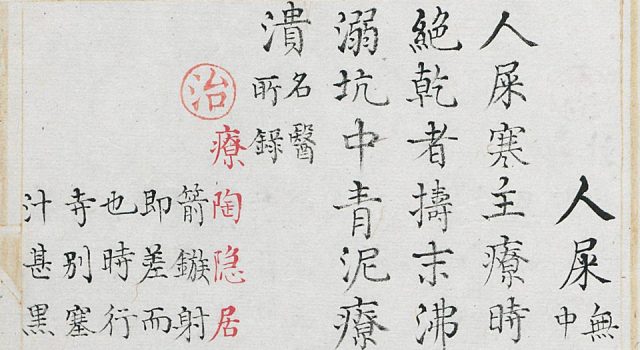 人屎無中
人屎寒主療時
絕乾者擣末沸
溺坑中青泥療
潰名醫
所錄
治
療陶隐居
箭鏃射
即差而
也時行
寺別塞
汁甚黑